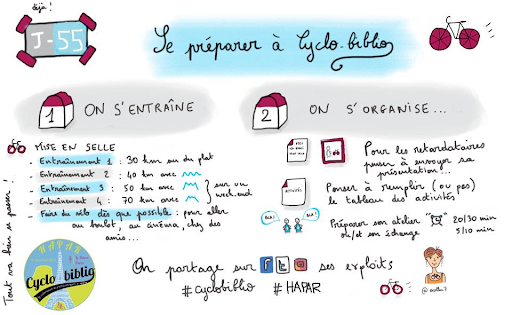 déjà !
J-55
Se préparer à Cyclo-biblio
1 ON S'ENTRAÎNE
2 ON S'ORGANISE...
MISE EN SELLE
. Entraînement 1 : 30 km sur du plat
. Entraînement 2 : 40 km avec
. Entraînement 3 : 50 km avec
. Entraînement 4 : 70 km avec
sur un
week-end
. Faire du vélo dès que possible : pour aller
au boulot, au cinéma, chez des
amis...
Pour les retardataires
penser à envoyer sa
présentation...
ACTIVITÉS
Penser à remplir (ou pas)
le tableau des activités
BLA! BLA!
Préparer son atelier 20/30 min
ou/et son échange 5/10 min
Tout va bien se passer !
HAPAR
Cyclo
biblio
On partage sur f t ses exploits
#cyclobiblio #HAPAR